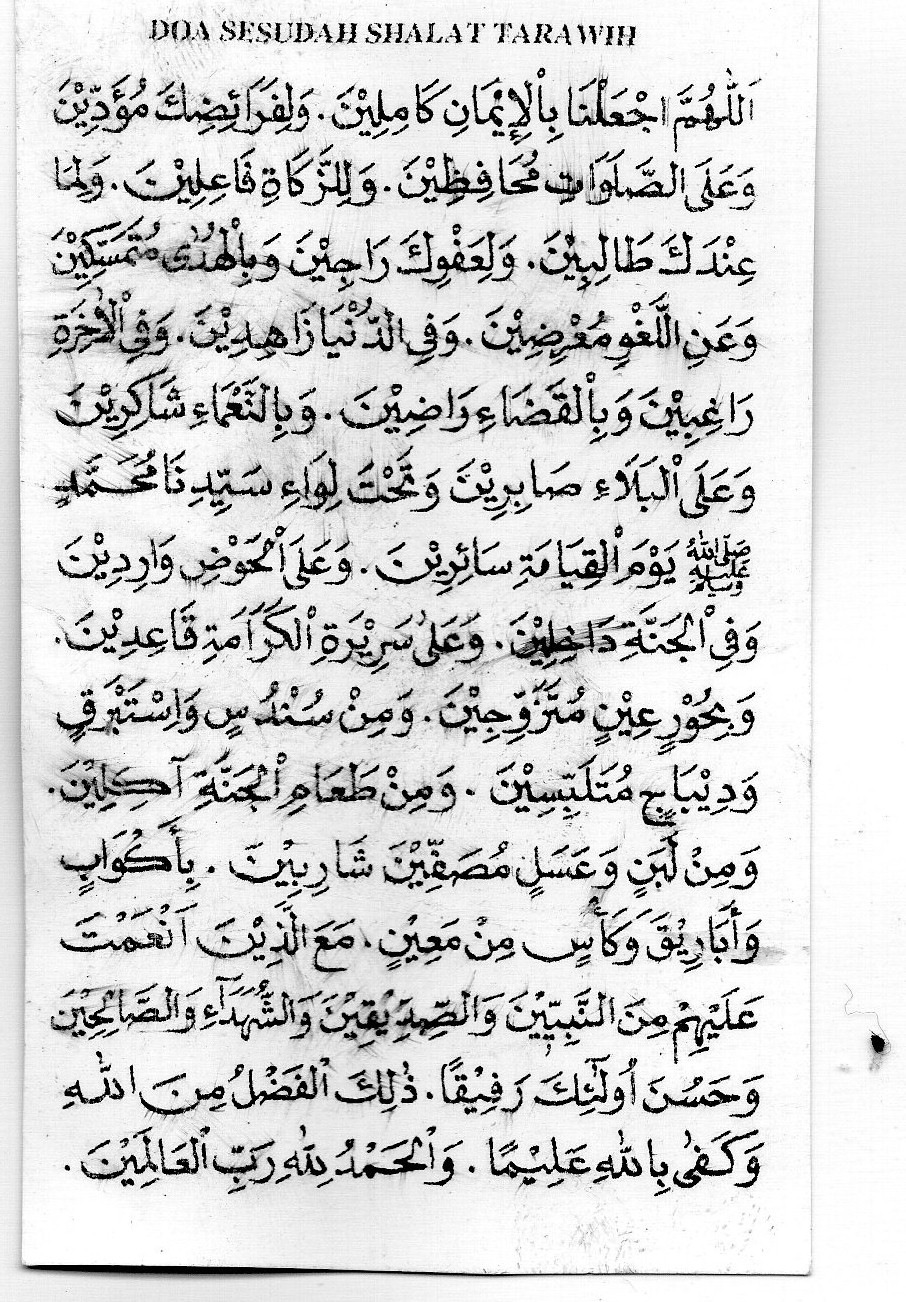 DOA SESUDAH SHALAT TARAWIH
اَللّٰهُمَّ اجْعَلْنَا بِاْلإِيْمَانِ كَامِلِيْنَ. وَلِفَرَائِضِكَ مُؤَدِّيْنَ
وَعَلَى الصَّلَوَاتِ مُحَافِظِيْنَ. وَلِلزَّكَاةِ فَاعِلِيْنَ. وَلِمَا
عِنْدَكَ طَالِبِيْنَ. وَلِعَفْوِكَ رَاجِيْنَ وَبِاْلهُدٰى مُتَمَسِّكِيْنَ
وَعَنِ اللَّغْوِ مُعْرِضِيْنَ. وَفِى الدُّنْيَا زَاهِدِيْنَ. وَفِى اْلأٰخِرَةِ
رَاغِبِيْنَ وَبِاْلقَضَاءِ رَاضِيْنَ. وَبِالنَّعْمَاءِ شَاكِرِيْنَ
وَعَلَى اْلبَلَاءِ صَابِرِيْنَ وَتَحْتَ لِوَاءِ سَيِّدِنَا مُحَمَّدٍ
صَلَّى اللّٰهُ عَلَيْهِ وَسَلَّمَ يَوْمَ اْلقِيَامَةِ سَائِرِيْنَ. وَعَلَى اْلحَوْضِ وَارِدِيْنَ
وَفِى اْلجَنَّةِ دَاخِلِيْنَ. وَعَلٰى سَرِيْرَةِ اْلكَرَامَةِ قَاعِدِيْنَ.
وَبِحُوْرٍ عِيْنٍ مُتَزَوِّجِيْنَ. وَمِنْ سُنْدُسٍ وَاِسْتَبْرَقٍ
وَدِيْبَاجٍ مُتَلَبِّسِيْنَ. وَمِنْ طَعَامِ اْلجَنَّةِ آكِلِيْنَ.
وَمِنْ لَبَنٍ وَعَسَلٍ مُصَفِّيْنَ شَارِبِيْنَ. بِأَكْوَابٍ
وَأَبَارِيْقَ وَكَأْسٍ مِنْ مَعِيْنٍ. مَعَ الَّذِيْنَ اَنْعَمْتَ
عَلَيْهِمْ مِنَ النَّبِيِّيْنَ وَالصِّدِيْقِيْنَ وَالشُّهَدَآءِ وَالصَّالِحِيْنَ
وَحَسُنَ اُولٰٓئِكَ رَفِيْقًا. ذٰلِكَ اْلفَضْلُ مِنَ اللّٰهِ
وَكَفٰى بِاللّٰهِ عَلِيْمًا. وَاْلحَمْدُ لِلّٰهِ رَبِّ اْلعَالَمِيْنَ.